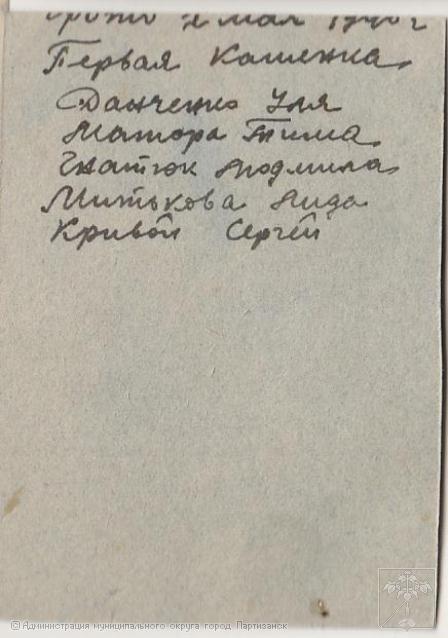 фото 2 мая 19
Первая Каменка
Данченко Уля
Матора Тима
Гнатюк Людмила
Митькова Лида
Кривой Сергей
© Администрация муниципального округа город Партизанск